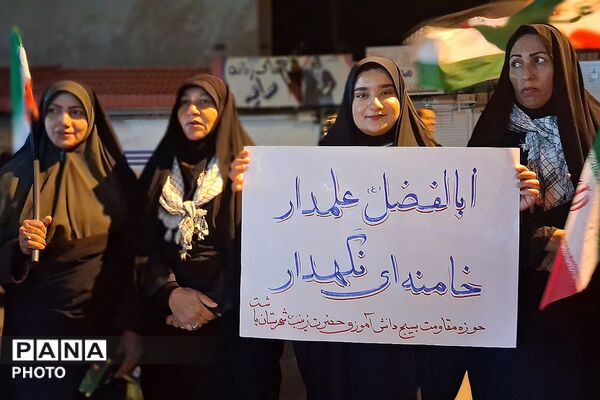 ابالفضل (ع) علمدار
خامنه ای نگهدار
حوزه مقاومت بسیج دانش آموزی حضرت زینب (س) شهرستان باشت
PANA
PHOTO